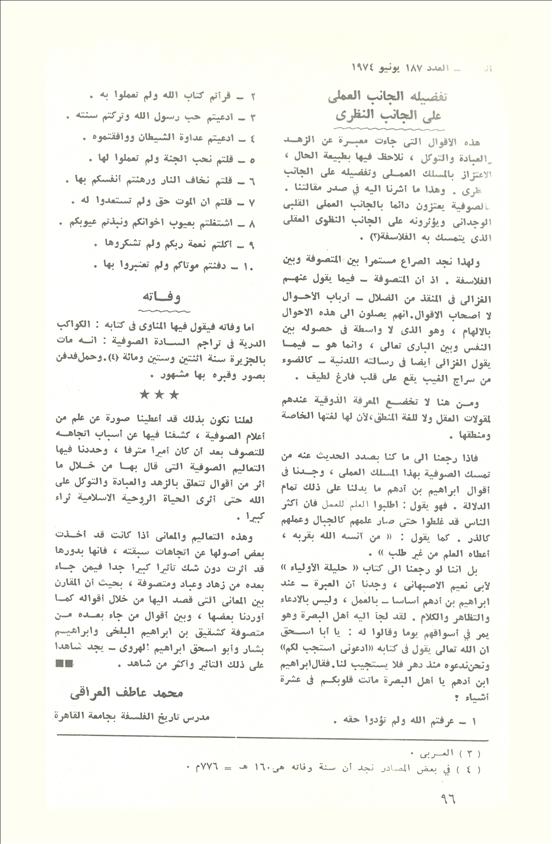 ـ العدد ١٨٧ يونيو ١٩٧٤
تفضيله الجانب العملى
على الجانب النظرى
هذه الأقوال التى جاءت معبرة عن الزهد
والعبادة والتوكل ، نلاحظ فيها بطبيعة الحال ،
الاعتزاز بالمسلك العملى وتفضيله على الجانب
النظرى . وهذا ما أشرنا اليه في صدر مقالتنا .
فالصوفية يعتزون دائما بالجانب العملى القلبى
الوجدانى ويؤثرونه على الجانب النظوى العقلى
الذى يتمسك به الفلاسفة(٣) .
ولهذا نجد الصراع مستمرا بين المتصوفة وبين
الفلاسفة . اذ أن المتصوفة ـ فيما يقول عنهم
الغزالى في المنقذ من الضلال ـ أرباب الأحوال
لا أصحاب الاقوال.انهم يصلون الى هذه الاحوال
بالالهام ، وهو الذى لا واسطة فى حصوله بين
النفس وبين البارى تعالى ، وانما هو ـ فيما
يقول الغزالى أيضا فى رسالته اللدنية ـ كالضوء
من سراج الغيب يقع على قلب فارغ لطيف .
ومن هنا لا تخضع المعرفة الذوقية عندهم
لمقولات العقل ولا للغة المنطق،لأن لها لغتها الخاصة
ومنطقها .
فاذا رجعنا الى ما كنا بصدد الحديث عنه من
تمسك الصوفية بهذا المسلك العملى ، وجدنا فى
أقوال ابراهيم بن أدهم ما يدلنا على ذلك تمام
الدلالة . فهو يقول : اطلبوا العلم للعمل فان أكثر
الناس قد غلطوا حتى صار علمهم كالجبال وعملهم
كالذر . كما يقول : « من آنسه الله بقربه ،
أعطاه العلم من غير طلب » .
بل اننا لو رجعنا الى كتاب « حليلة الأولياء »
لأبى نعيم الاصبهانى ، وجدنا أن العبرة ـ عند
ابراهيم بن أدهم أساسا ـ بالعمل ، وليس بالادعاء
والتظاهر والكلام . لقد لجأ اليه أهل البصرة وهو
يمر فى أسواقهم يوما وقالوا له : يا أبا اسحق
ان الله تعالى يقول فى كتابه «ادعونى أستجب لكم»
ونحن ندعوه منذ دهر فلا يستجيب لنا.فقال ابراهيم
ابن أدهم يا أهل البصرة ماتت قلوبكم فى عشرة
أشياء :
١ ـ عرفتم الله ولم تؤدوا حقه .
٢ ـ قرأتم كتاب الله ولم تعملوا به .
٣ ـ ادعيتم حب رسول الله وتركتم سنته .
٤ ـ ادعيتم عداوة الشيطان ووافقتموه .
٥ ـ قلتم نحب الجنة ولم تعملوا لها .
٦ ـ قلتم نخاف النار ورهنتم أنفسكم بها .
٧ ـ قلتم ان الموت حق ولم تستعدوا له .
٨ ـ اشتغلتم بعيوب اخوانكم ونبذتم عيوبكم .
٩ ـ أكلتم نعمة ربكم ولم تشكروها .
١٠ ـ دفنتم موتاكم ولم تعتبروا بها .
وفـاته
أما وفاته فيقول فيها المناوى فى كتابه : الكواكب
الدرية فى تراجم السادة الصوفية : انه مات
بالجزيرة سنة اثنتين وستين ومائة (٤).وحمل فدفن
بصور وقبره بها مشهور .
★★★
لعلنا نكون بذلك قد أعطينا صورة عن علم من
أعلام الصوفية ، كشفنا فيها عن أسباب اتجاهه
للتصوف بعد أن كان أميرا مترفا ، وحددنا فيها
التعاليم الصوفية التى قال بها من خلال ما
أثر من أقوال تتعلق بالزهد والعبادة والتوكل على
الله حتى أثرى الحياة الروحية الاسلامية ثراء
كبيرا .
وهذه التعاليم والمعانى اذا كانت قد أخذت
بعض أصولها عن اتجاهات سبقته ، فانها بدورها
قد أثرت دون شك تأثيرا كبيرا جدا فيمن جاء
بعده من زهاد وعباد ومتصوفة ، بحيث أن المقارن
بين المعانى التى قصد اليها من خلال أقواله كما
أوردنا بعضها ، وبين أقوال من جاء بعده من
متصوفة كشقيق بن ابراهيم البلخى وابراهيم
بشار وأبو اسحق ابراهيم الهروى ـ يجد شاهدا
على ذلك التأثير وأكثر من شاهد .
محمد عاطف العراقى
مدرس تاريخ الفلسفة بجامعة القاهرة
( ٣ ) العربى .
( ٤ ) في بعض المصادر نجد أن سنة وفاته هى ١٦٠ هـ = ٧٧٦م .
٩٦